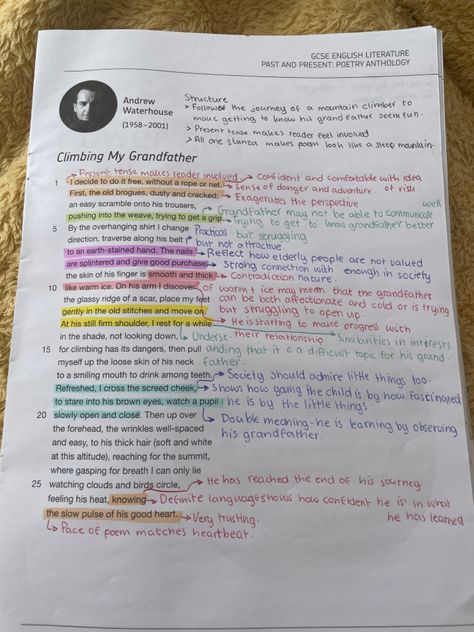 GCSE ENGLISH LITERATURE
PAST AND PRESENT: POETRY ANTHOLOGY
Andrew
Waterhouse
(1958–2001)
Structure
> Follows the journey of a mountain climber to
make getting to know his grandfather seem fun.
> Present tense makes reader feel involved
> All one stanza makes poem look like a steep mountain.
Climbing My Grandfather
Present tense makes reader involved
1 I decide to do it free, without a rope or net. → Confident and comfortable with idea of risk.
→ Sense of danger and adventure
First, the old brogues, dusty and cracked; → Exagerates the perspective.
an easy scramble onto his trousers, → Grandfather may not be able to communicate well
pushing into the weave, trying to get a grip. → trying to get to know grandfather better
5 By the overhanging shirt I change Practical but struggling
direction, traverse along his belt but not attractive
to an earth-stained hand. The nails → Reflect how elderly people are not valued enough in society
are splintered and give good purchase, → Strong connection with nature.
the skin of his finger is smooth and thick → Contradiction
10 like warm ice. On his arm I discover of warm + ice may mean that the grandfather
the glassy ridge of a scar, place my feet can be both affectionate and cold or is trying
gently in the old stitches and move on. but struggling to open up.
At his still firm shoulder, I rest for a while → He is starting to make progress with
their relationship → Similarities in interests
in the shade, not looking down, → Underst
15 for climbing has its dangers, then pull anding that it is a difficult topic for his grand
myself up the loose skin of his neck father.
to a smiling mouth to drink among teeth. → Society should admire little things too.
Refreshed, I cross the screed cheek, → Shows how young the child is by how fascinated
to stare into his brown eyes, watch a pupil he is by the little things.
20 slowly open and close. Then up over → Double meaning - he is learning by observing
the forehead, the wrinkles well-spaced his grandfather.
and easy, to his thick hair (soft and white
at this altitude), reaching for the summit,
where gasping for breath I can only lie
25 watching clouds and birds circle, → He has reached the end of his journey
feeling his heat, knowing → Definite language shows how confident he is in what
he has learned
the slow pulse of his good heart. → Very trusting.
↳ Pace of poem matches heartbeat.